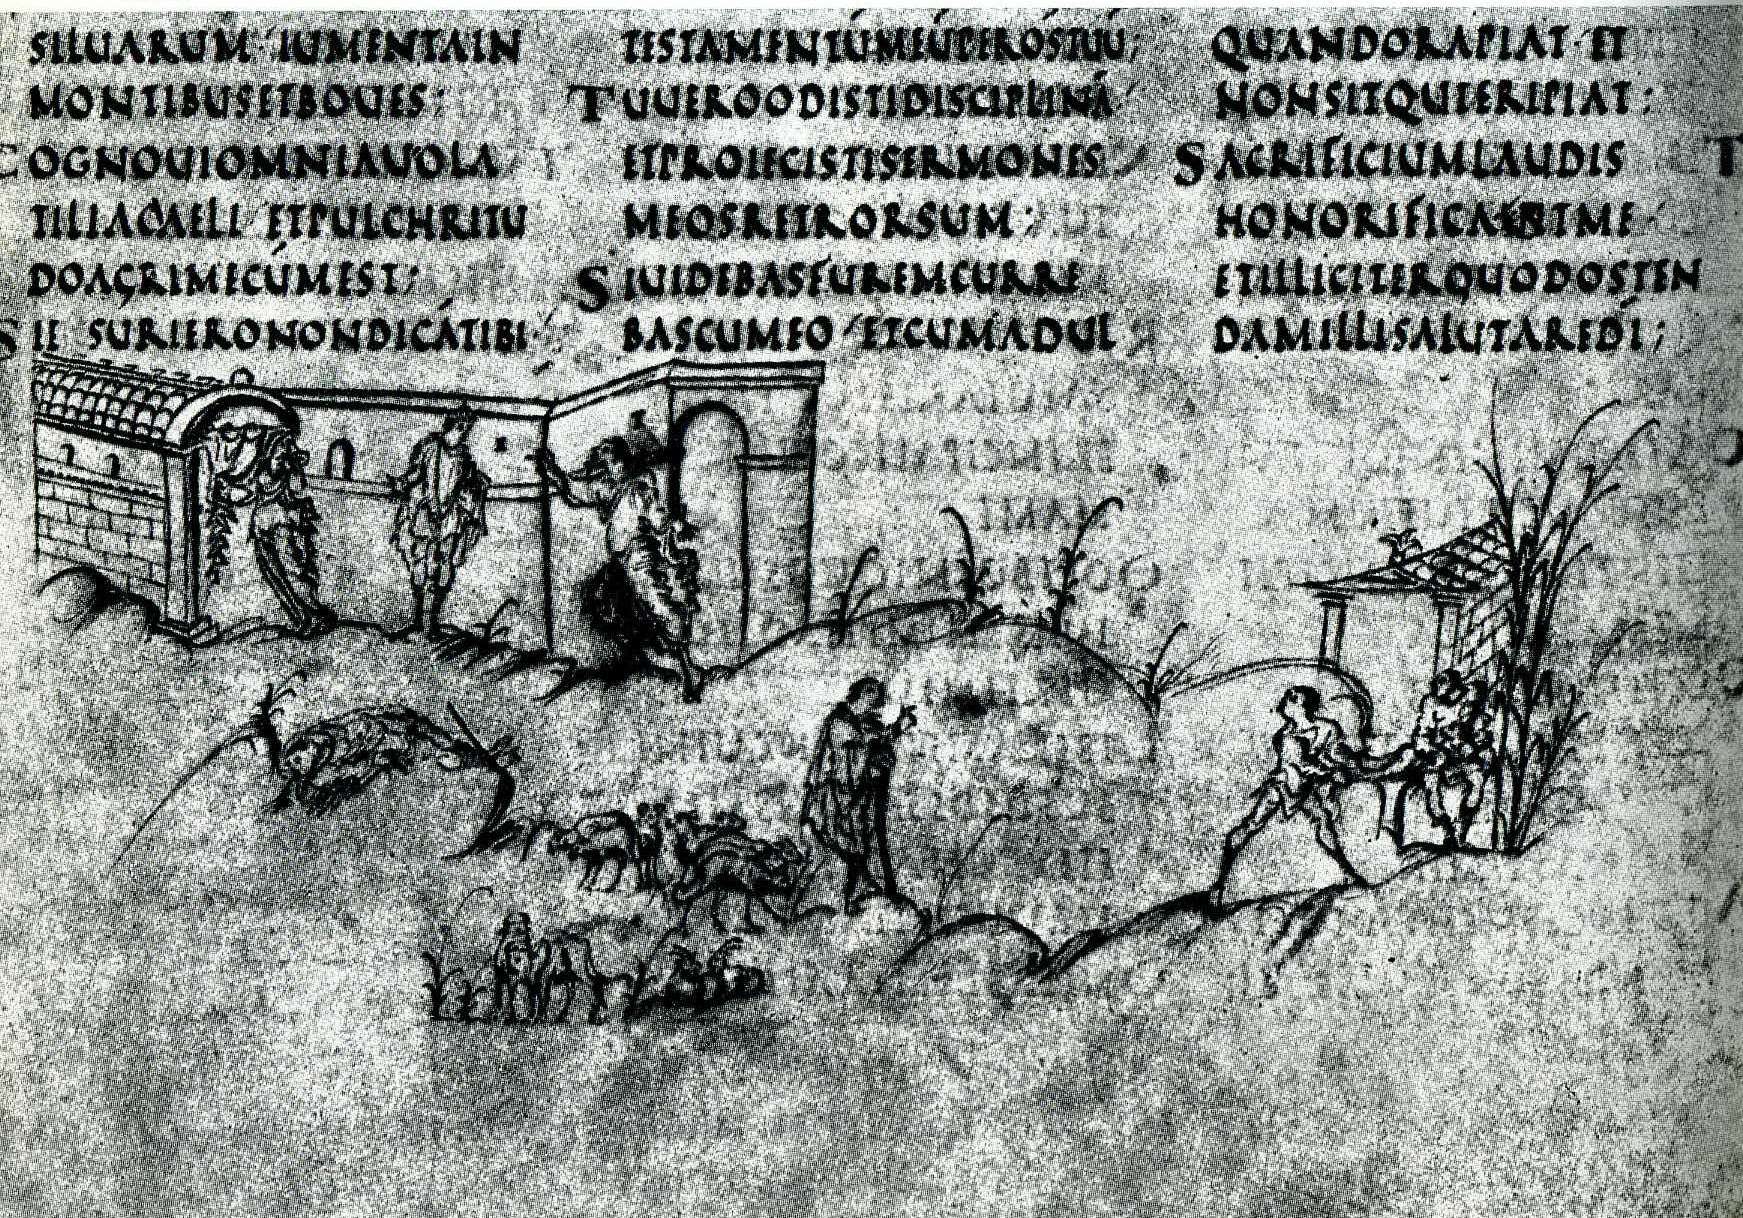 SILUARUM· IUMENTAIN
MONTIBUSETBOUES;
COGNOUIOMNIAUOLA
TILIACAELI· ETPULCHRITU
DOAGRIMECŪMEST;
SIE SURIERONONDICĀTIBI·
TESTAMENTŪMEŪPEROSTUŪ;
TUUEROODISTIDISCIPLINĀ·
ETPROIECISTISERMONES
MEOSRETRORSUM;
SIUIDEBASFUREMCURRE
BASCUMEO· ETCUMADUL
QUANDORAPIAT· ET
NONSITQUIERIPIAT;
SACRIFICIUMLAUDIS
HONORIFICABITME·
ETILLICITERQUODOSTEN
DAMILLISALUTAREDĪ;